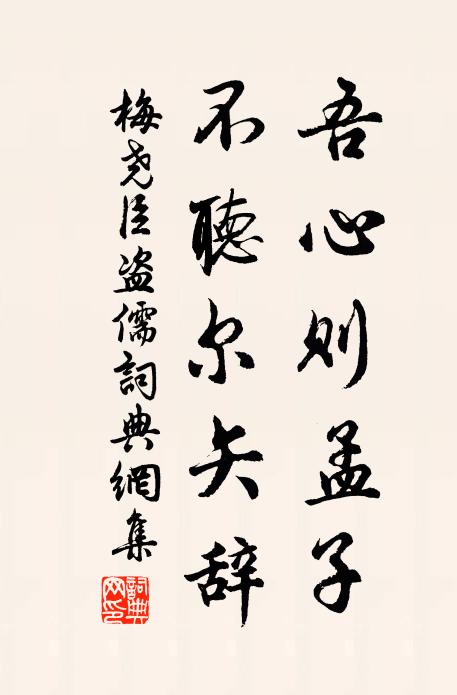 吾心则孟子
不聽尔矢辞
梅尧臣盗儒詞典網集
詞典网印